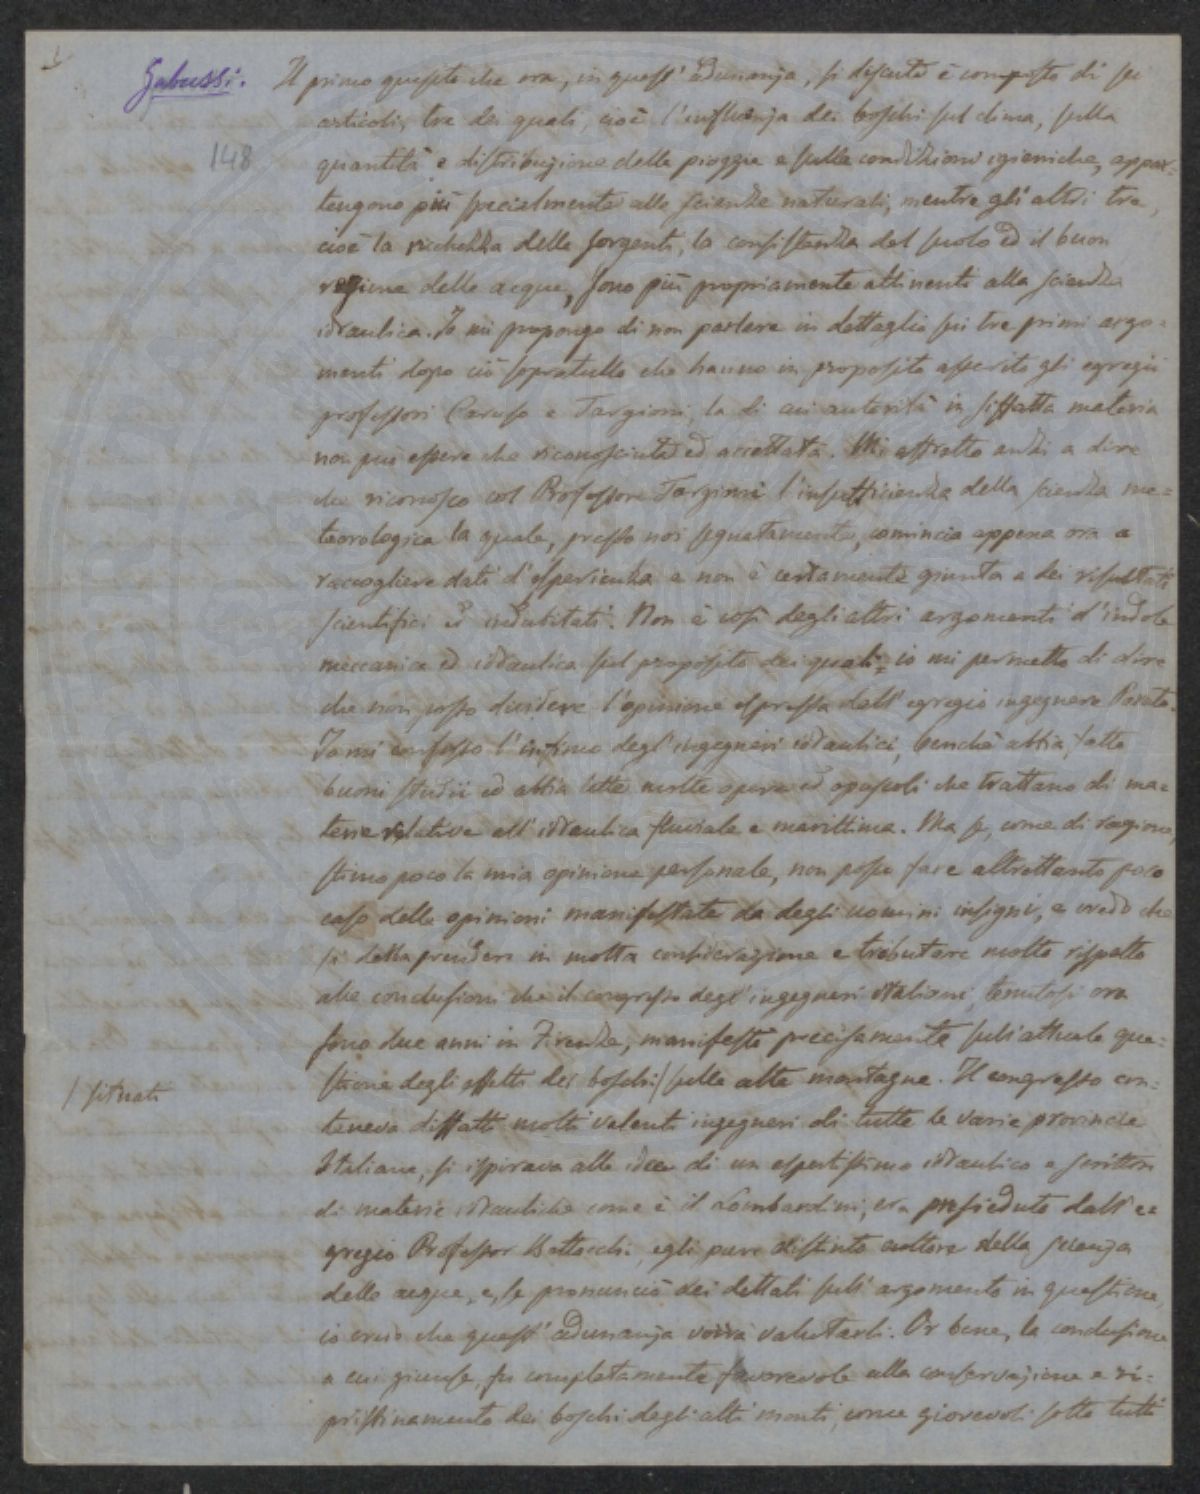 1
Gabussi. Il primo quesito che ora, in quest' adunanza, si discute è composto di sei
articoli, tre dei quali, cioè l'influenza dei boschi sul clima, sulla
148
quantità e distribuzione delle piogge e sulle condizioni igieniche, appar=
tengono più specialmente alle scienze naturali, mentre gli altri tre,
cioè la ricchezza delle sorgenti, la consistenza del suolo ed il buon
regime delle acque, sono più propriamente attinenti alla scienza
idraulica. Io mi propongo di non parlare in dettaglio sui tre primi argo=
menti dopo ciò sopratutto che hanno in proposito asserito gli egregii
professori Caruso e Targioni, la di cui autorità in siffatta materia
non può essere che riconosciuta ed accettata. Mi affretto anzi a dire
che riconosco col Professore Targioni l'insufficienza della scienza me=
teorologica la quale, presso noi segnatamente, comincia appena ora a
raccogliere dati d'esperienza e non è certamente giunta a dei risultati
scientifici ed indubitati. Non è così degli altri argomenti d'indole
meccanica ed idraulica sul proposito dei quali io mi permetto di dire
che non posso dividere l'opinione espressa dall' egregio ingegnere
Io mi confesso l'infimo degl' ingegneri idraulici, benchè abbia fatto
buoni studii ed abbia letto molte opere ed opuscoli che trattano di ma=
terie relative all' idraulica fluviale e marittima. Ma se, come di ragione,
stimo poco la mia opinione personale, non posso fare altrettanto poco
caso delle opinioni manifestate da degli uomini insigni, e credo che
si debba prendere in molta considerazione e tributare molto rispetto
alle conclusioni che il congresso degl' ingegneri italiani, tenutosi ora
sono due anni in Firenze, manifestò precisamente sull' attuale que=
stione degli effetti dei boschi/ sulle alte montagne. Il congresso con=
/ situati
teneva diffatti molti valenti ingegneri di tutte le varie provincie
Italiane, si ispirava alle idee di un espertissimo idraulico e scrittore
di materie idrauliche come è il Lombardini, era presieduto dall' e=
gregio Professor Betocchi, egli pure distinto cultore della scienza
delle acque, e, se pronunciò dei dettati sull' argomento in questione,
io credo che quest' adunanza vorrà valutarli. Or bene, la conclusione
a cui giunse, fu completamente favorevole alla conservazione e ri=
pristinamento dei boschi degli alti monti, come giovevoli sotto tutti